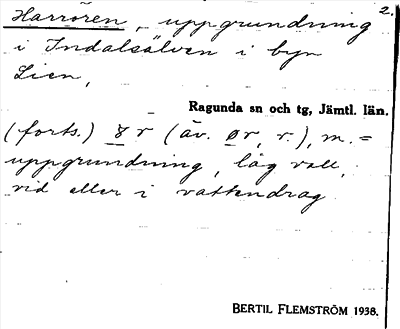 2.
Harrören, uppgrundning
i Indalsälven i byn
Lien,
Ragunda sn och tg, Jämtl. län.
(forts.) ȣr (äv. ør, r.), m. =
uppgrundning, låg vall,
vid eller i vattendrag
BERTIL FLEMSTRÖM 1938.